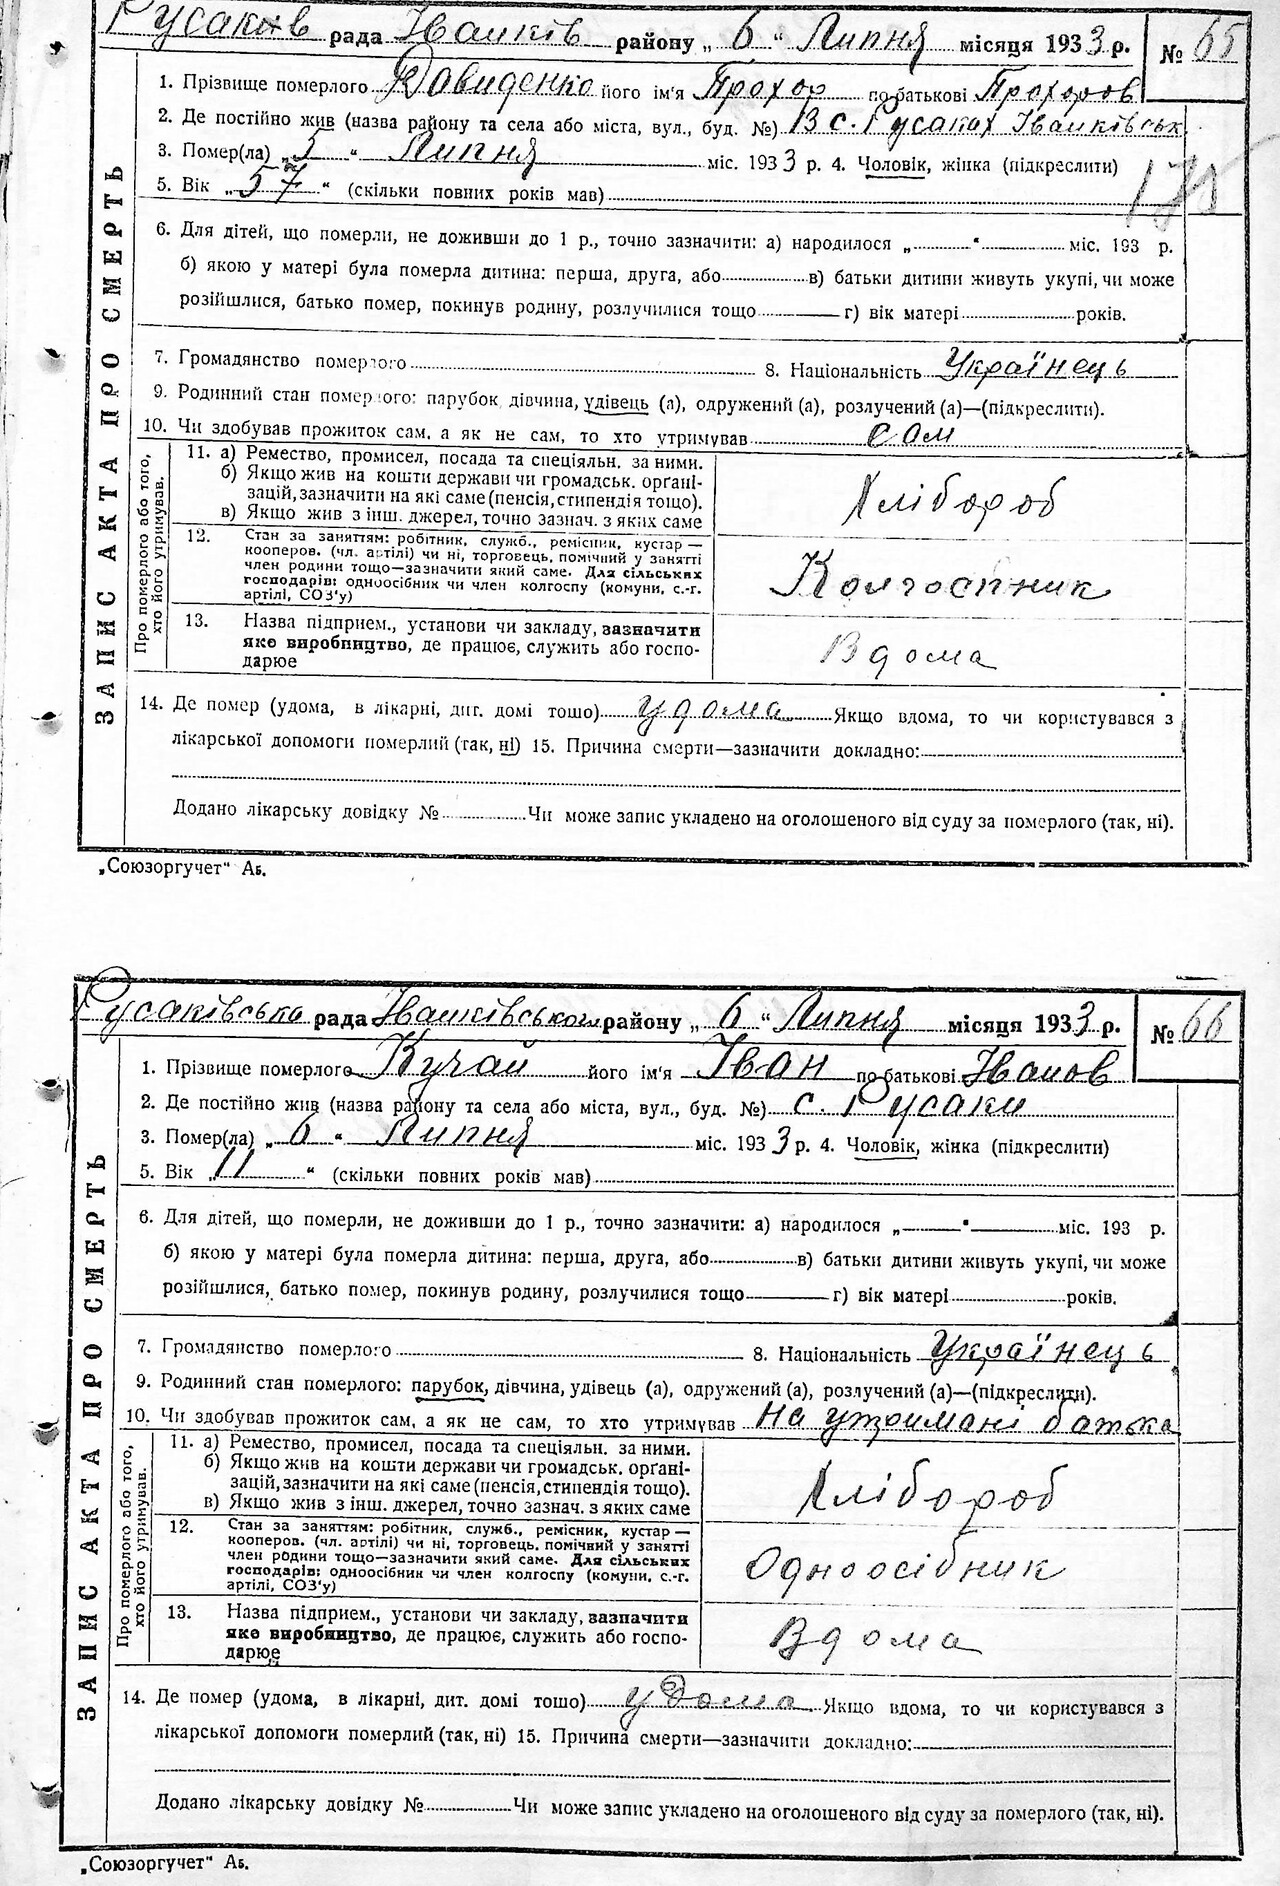 Русаків рада Іванків району „ 6 “ Липня місяця 1933 р. № 65
1. Прізвище померлого Давиденко його ім'я Прохор по батькові Прохоров
2. Де постійно жив (назва району та села або міста, вул., буд. №) В с. Русаках Іванківськ
3. Помер(ла) „ 5 “ Липня міс. 1933 р. 4. Чоловік, жінка (підкреслити)
5. Вік „ 57 “ (скільки повних років мав)
175
6. Для дітей, що померли, не доживши до 1 р., точно зазначити: а) народилося „ “ міс. 193 р.
б) якою у матері була померла дитина: перша, друга, або в) батьки дитини живуть укупі, чи може
розійшлися, батько помер, покинув родину, розлучилися тощо г) вік матері років.
7. Громадянство померлого 8. Національність Українець
9. Родинний стан померлого: парубок, дівчина, удівець (а), одружений (а), розлучений (а)—(підкреслити).
10. Чи здобував прожиток сам, а як не сам, то хто утримував сам
ЗАПИС АКТА ПРО СМЕРТЬ
Про померлого або того, хто його утримував.
11. а) Ремество, промисел, посада та спеціяльн. за ними.
б) Якщо жив на кошти держави чи громадськ. орґані-
зацій, зазначити на які саме (пенсія, стипендія тощо).
в) Якщо жив з інш. джерел, точно зазнач. з яких саме
Хлібороб
12. Стан за заняттям: робітник, служб., ремісник, кустар —
кооперов. (чл. артілі) чи ні, торговець, помічний у занятті
член родини тощо—зазначити який саме. Для сільських
господарів: одноосібник чи член колгоспу (комуни, с.-г.
артілі, СОЗ'у)
Колгоспник
13. Назва підприєм., установи чи закладу, зазначити
яке виробництво, де працює, служить або госпо-
дарює
Вдома
14. Де помер (удома, в лікарні, дит. домі тошо) удома Якщо вдома, то чи користувався з
лікарської допомоги померлий (так, ні) 15. Причина смерти—зазначити докладно:
Додано лікарську довідку № Чи може запис укладено на оголошеного від суду за померлого (так, ні).
„Союзоргучет“ Аб.
Русаківська рада Іванківського району „ 6 “ Липня місяця 1933 р. № 66
1. Прізвище померлого Кучай його ім'я Іван по батькові Іванов
2. Де постійно жив (назва району та села або міста, вул., буд. №) с. Русаки
3. Помер(ла) „ 6 “ Липня міс. 1933 р. 4. Чоловік, жінка (підкреслити)
5. Вік „ 11 “ (скільки повних років мав)
6. Для дітей, що померли, не доживши до 1 р., точно зазначити: а) народилося „ “ міс. 193 р.
б) якою у матері була померла дитина: перша, друга, або в) батьки дитини живуть укупі, чи може
розійшлися, батько помер, покинув родину, розлучилися тощо г) вік матері років.
7. Громадянство померлого 8. Національність Українець
9. Родинний стан померлого: парубок, дівчина, удівець (а), одружений (а), розлучений (а)—(підкреслити).
10. Чи здобував прожиток сам, а як не сам, то хто утримував на утримані батька
ЗАПИС АКТА ПРО СМЕРТЬ
Про померлого або того, хто його утримував.
11. а) Ремество, промисел, посада та спеціяльн. за ними.
б) Якщо жив на кошти держави чи громадськ. орґані-
зацій, зазначити на які саме (пенсія, стипендія тощо).
в) Якщо жив з інш. джерел, точно зазнач. з яких саме
Хлібороб
12. Стан за заняттям: робітник, служб., ремісник, кустар —
кооперов. (чл. артілі) чи ні, торговець, помічний у занятті
член родини тощо—зазначити який саме. Для сільських
господарів: одноосібник чи член колгоспу (комуни, с.-г.
артілі, СОЗ'у)
Одноосібник
13. Назва підприєм., установи чи закладу, зазначити
яке виробництво, де працює, служить або госпо-
дарює
Вдома
14. Де помер (удома, в лікарні, дит. домі тошо) удома Якщо вдома, то чи користувався з
лікарської допомоги померлий (так, ні) 15. Причина смерти—зазначити докладно:
Додано лікарську довідку № Чи може запис укладено на оголошеного від суду за померлого (так, ні).
„Союзоргучет“ Аб.